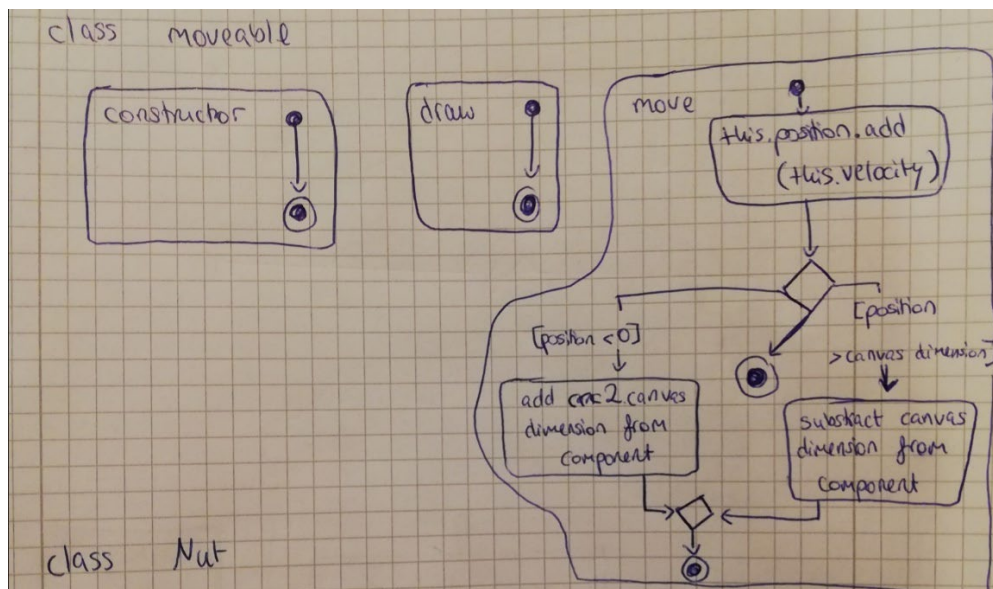 class moveable
constructor
draw
move
this.position.add
(this.velocity)
[position <0]
[position
>canvas dimension]
add crc2.canvas
dimension from
component
substract canvas
dimension from
component
class Nut